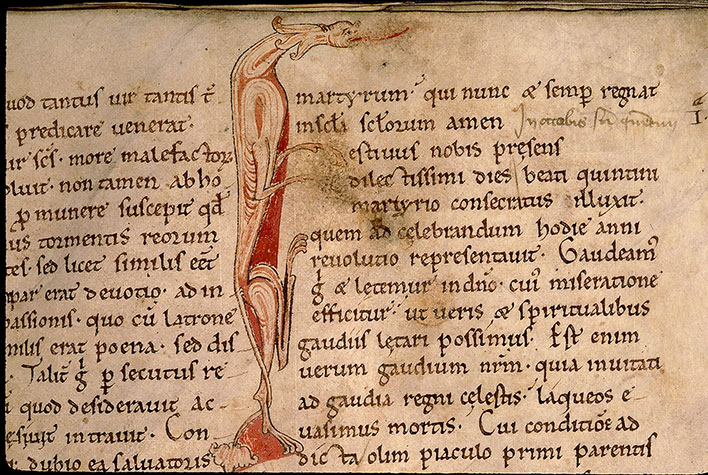 uod tantus uir tantis t̄
predicare uenerat·
ur sc̄s· more malefactor
oluit· non tamen ab ho
ꝑ munere suscepit qd̄
us tormentis reorum
tes· sed licet similis eēt
par erat deuotio· ad in
passionis· quo cū latrone
milis erat poena· sed dis
· Talit̄ g̊ ꝑ secutus re
i quod desiderauit ac
intrauit· Con
dubio ea saluatoris
martyrum· qui nunc & semꝑ regnat
in scl̄a scl̄orum amen
estiuus nobis presens
dilectissimi dies beati quintini
martyrio consecratus illuxit·
quem ad celebrandum hodie anni
reuolutio representauit· Gaudeam᷒
g̊ & letemur in dnō· cui᷒ miseratione
efficitur· ut ueris & spiritualibus
gaudiis letari possimus· Est enim
uerum gaudium nrm̄· quia inuitati
ad gaudia regni celestis· laqueos e
uasimus mortis· Cui conditiōe ad
dicta olim piaculo primi parentis